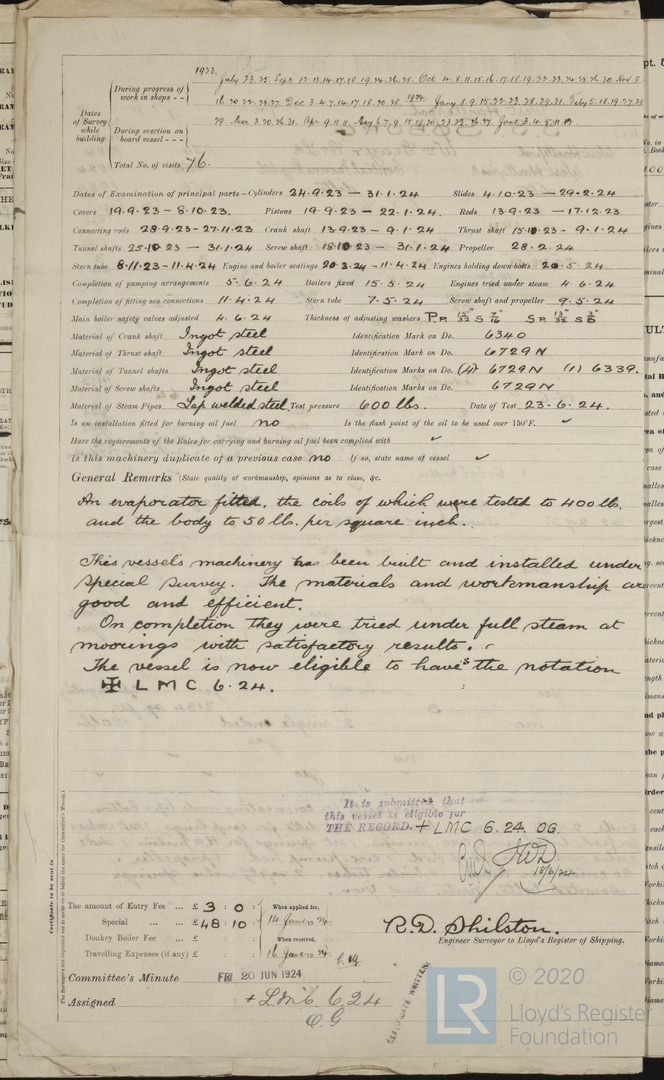 1923.
During progress of work in shops - -
July 23.25 Sept 12.13.14.17.18.19.24.26.28 Oct 4.8.11.15.16.17.18.19.22.23.24.25.26.30 Nov 8
16.20.22.23.27 Dec 3.4.7.14.17.18.20.28 1924 Jany 8.9.15.22.23.28.29.31 Feby 5.18.19.27.28
Dates of Survey while building
During erection on board vessel - - -
29. Mar 3.20.26.31. Apr 9.11.11 May 6.7.9.15.19.20.23.23.26.27. June 3.4.5.11.17
Total No. of visits 76.
Dates of Examination of principal parts—Cylinders 24.9.23 — 31.1.24 Slides 4.10.23 — 29.2.24
Covers 19.9.23 – 8.10.23. Pistons 19.9.23 — 22.1.24. Rods 13.9.23 — 17.12.23
Connecting rods 28.9.23 – 27.11.23 Crank shaft 13.9.23 – 9.1.24 Thrust shaft 15.10.23 – 9.1.24
Tunnel shafts 25.10.23 — 31.1.24 Screw shaft 18.10.23 — 31.1.24 Propeller 28.2.24
Stern tube 8.11.23 – 11.4.24 Engine and boiler seatings 20.3.24 – 11.4.24 Engines holding down bolts 20.5.24
Completion of pumping arrangements 5.6.24 Boilers fixed 15.5.24 Engines tried under steam 4.6.24
Completion of fitting sea connections 11.4.24 Stern tube 7.5.24 Screw shaft and propeller 9.5.24
Main boiler safety valves adjusted 4.6.24 Thickness of adjusting washers P.P. 15/32" S 7/16" S P 13/32" S 3/8"
Material of Crank shaft Ingot steel Identification Mark on Do. 6340
Material of Thrust shaft Ingot steel Identification Mark on Do. 6729N
Material of Tunnel shafts Ingot steel Identification Marks on Do. (4) 6729N (1) 6339.
Material of Screw shafts Ingot steel Identification Marks on Do. 6729N
Material of Steam Pipes Lap welded steel. Test pressure 600 lbs. Date of Test 23-6-24.
Is an installation fitted for burning oil fuel no Is the flash point of the oil to be used over 150°F. ✓
Have the requirements of the Rules for carrying and burning oil fuel been complied with ✓
Is this machinery duplicate of a previous case no If so, state name of vessel ✓
General Remarks (State quality of workmanship, opinions as to class, &c.
An evaporator fitted, the coils of which were tested to 400 lb.
and the body to 50 lb. per square inch.
This vessel's machinery has been built and installed under
special survey. The materials and workmanship are
good and efficient.
On completion they were tried under full steam at
moorings with satisfactory results.
The vessel is now eligible to have the notation
✠ L M C 6.24.
It is submitted that
this vessel is eligible for
THE RECORD. + LMC 6.24 OG.
18/6/24
Certificate to be sent to
The Surveyors are requested not to write on or below the space for Committee's Minute.
The amount of Entry Fee ... £ 3 : 0 : When applied for,
Special ... ... £ 48 : 10 : 14 June 1924
Donkey Boiler Fee ... £ : : When received,
Travelling Expenses (if any) £ : : 16 June 1924
R.D. Shilston.
Engineer Surveyor to Lloyd's Register of Shipping.
Committee's Minute FRI 20 JUN 1924
Assigned + L.M.C. 6.24
O.G
CERTIFICATE WRITTEN
© 2020
LR
Lloyd's Register
Foundation